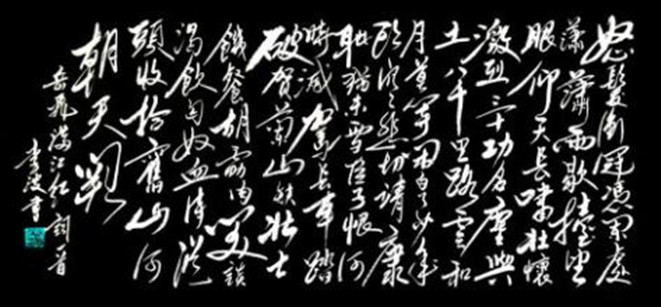 怒髮衝冠憑闌處
瀟瀟雨歇擡望
眼仰天長嘯壯懷
激烈三十功名塵與
土八千里路雲和
月莫等閒白了少年
頭空悲切靖康
耻猶未雪臣子恨何
時滅駕長車踏
破賀蘭山缺壯士
饑餐胡虜肉笑談
渴飲匈奴血待從
頭收拾舊山河
朝天闕
岳飛滿江紅詞一首
李 書